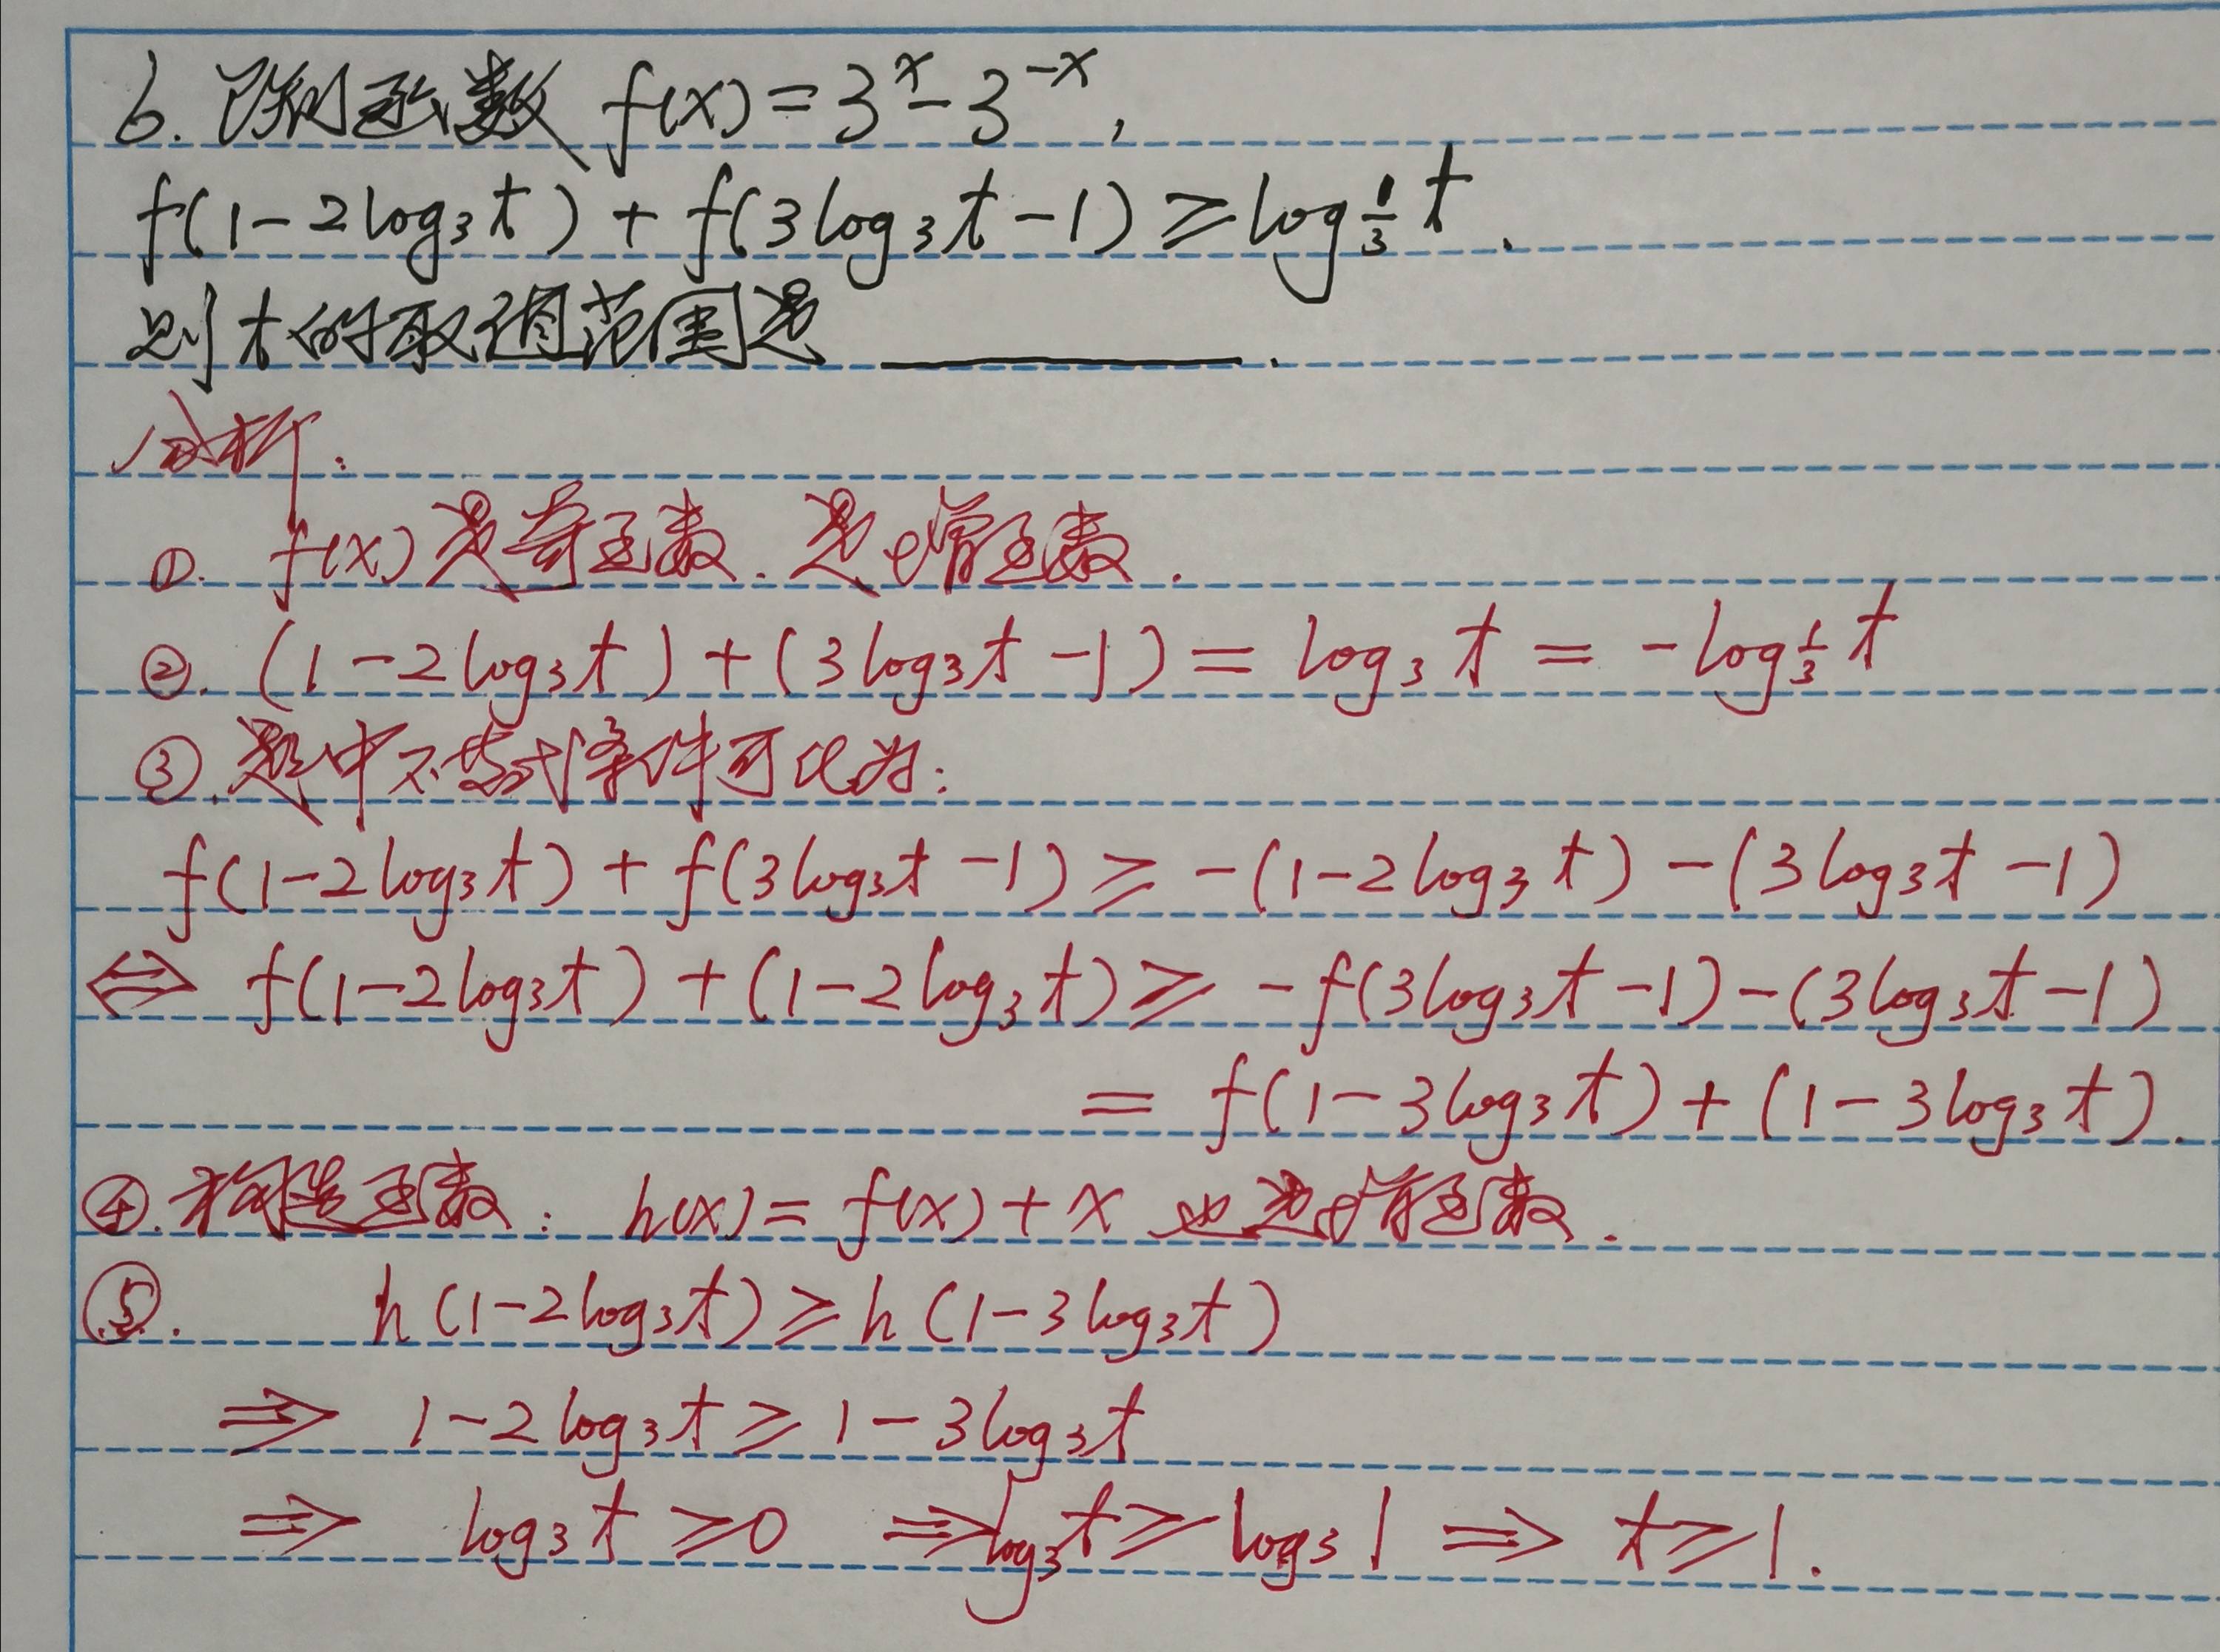 6. 已知函数 f(x)=3^x-3^{-x},
f(1-2log₃t)+f(3log₃t-1)≥log_{1/3}t.
则t的取值范围是 ______.
分析:
①. f(x)是奇函数.是增函数.
②. (1-2log₃t)+(3log₃t-1)=log₃t=-log_{1/3}t
③.题中不等式条件可化为:
f(1-2log₃t)+f(3log₃t-1)≥-(1-2log₃t)-(3log₃t-1)
⇔ f(1-2log₃t)+(1-2log₃t)≥-f(3log₃t-1)-(3log₃t-1)
=f(1-3log₃t)+(1-3log₃t).
④.构造函数: h(x)=f(x)+x 也是增函数.
⑤. h(1-2log₃t)≥h(1-3log₃t)
⇒ 1-2log₃t≥1-3log₃t
⇒ log₃t≥0 ⇒log₃t≥log₃1 ⇒ t≥1.